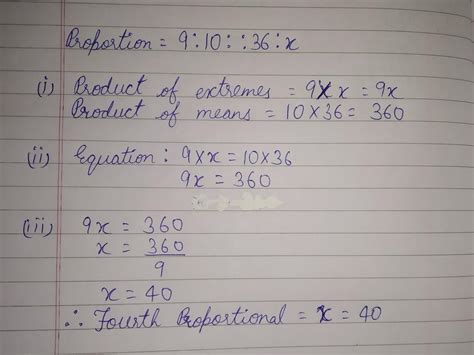 Proportion = 9:10::36:x
(i) Product of extremes = 9 × x = 9x
Product of means = 10 × 36 = 360
(ii) Equation : 9 × x = 10 × 36
9x = 360
(iii) 9x = 360
x = 360
9
x = 40
∴ Fourth Proportional = x = 40